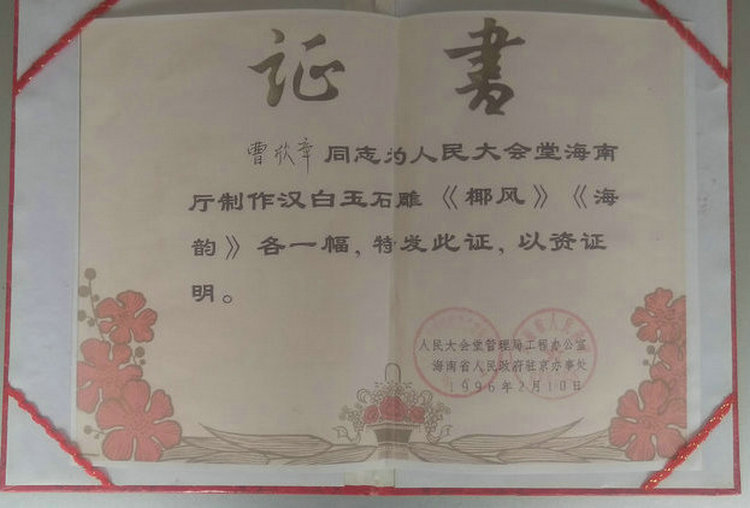 证书
曹欣章同志为人民大会堂海南
厅制作汉白玉石雕《椰风》《海
韵》各一幅，特发此证，以资证
明。
人民大会堂管理局工程办公室
海南省人民政府驻京办事处
1996年2月10日